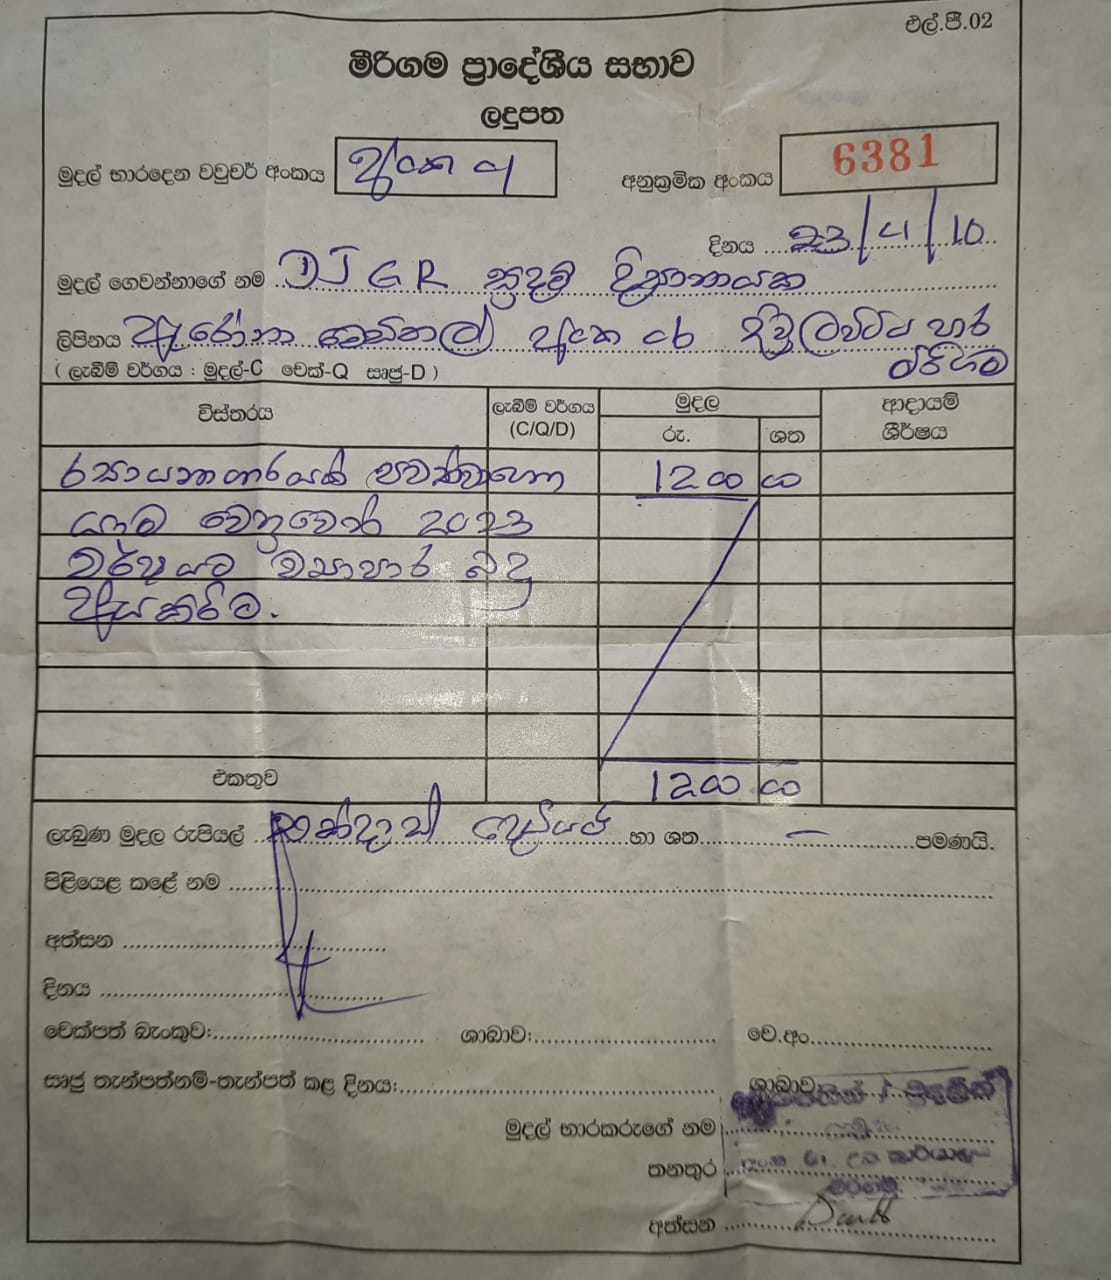 එල්.පී.02
මීරිගම ප්‍රාදේශීය සභාව
ලදුපත
මුදල් භාරදෙන වවුචර් අංකය අංක 4
අනුක්‍රමික අංකය 6381
දිනය 23/4/10
මුදල් ගෙවන්නාගේ නම DJGR සුදම් දිසානායක
ලිපිනය අංක දිවුලපිටිය පාර
මීරිගම
( ලැබීම් වර්ගය : මුදල්-C චෙක්-Q සෘජු-D )
විස්තරය ලැබීම් වර්ගය (C/Q/D) මුදල ආදායම් ශීර්ෂය
රු. ශත
රසායනාගාරයක් පවත්වාගෙන 1200 00
යාම වෙනුවෙන් 2023
වර්ෂයට ව්‍යාපාර බදු
අයකිරීම.
එකතුව 1200 00
ලැබුණ මුදල රුපියල් එක්දාස් දෙසියයි හා ශත — පමණයි.
පිළියෙළ කළේ නම
අත්සන
දිනය
චෙක්පත් බැංකුව: ශාඛාව: චෙ.අං.
සෘජු තැන්පත්නම්-තැන්පත් කළ දිනය: ශාඛාව
මුදල් භාරකරුගේ නම
තනතුර උප කාර්යාලය
මීරිගම
අත්සන